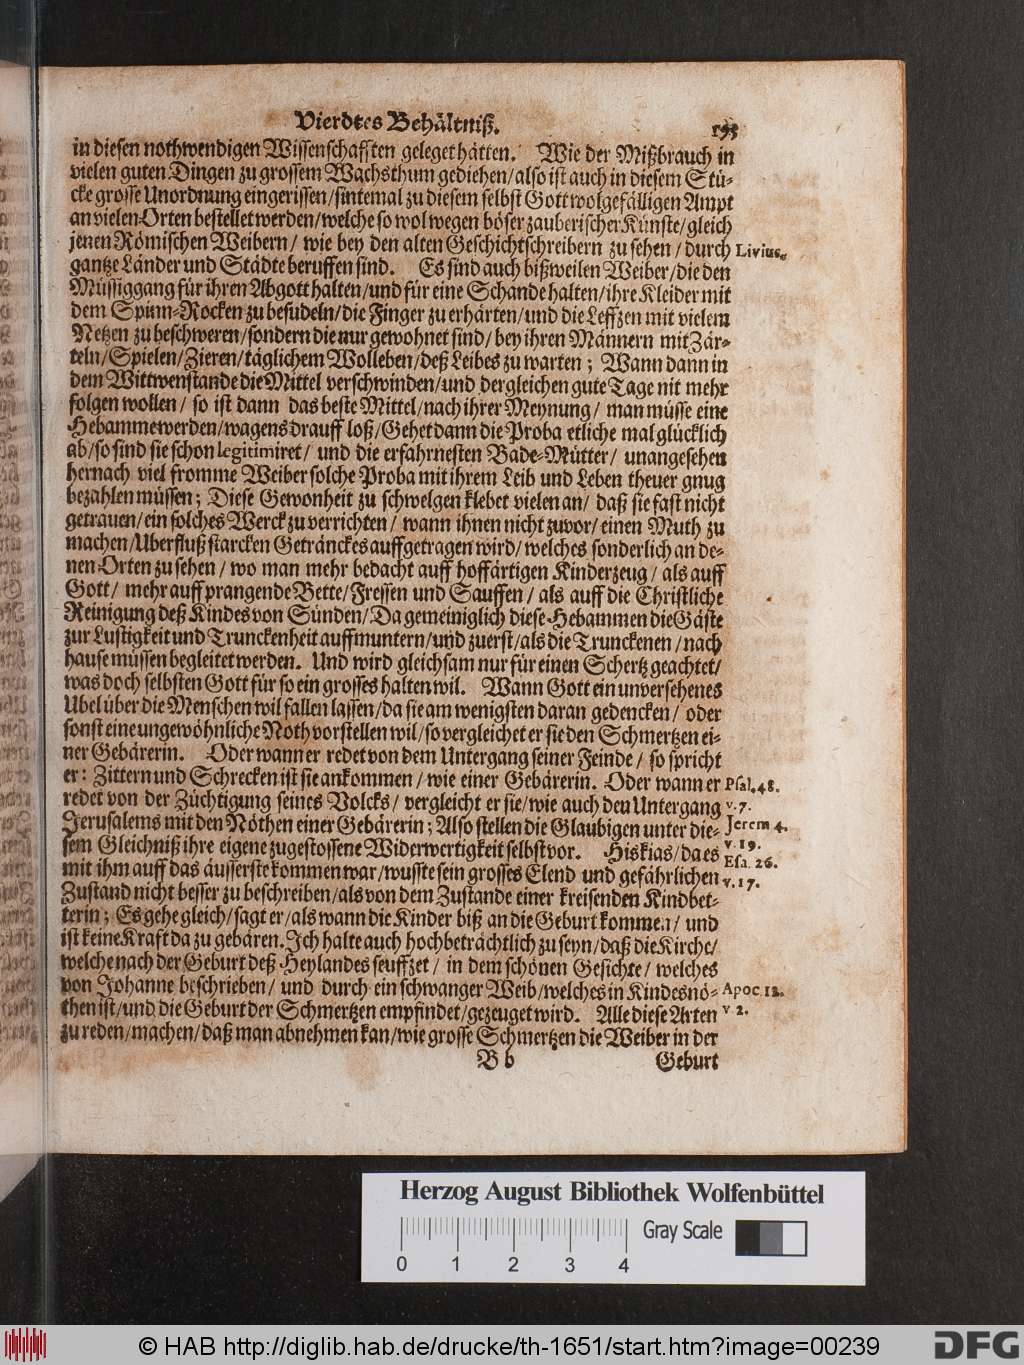 Vierdtes Behältniß. 193
in diesen nothwendigen Wissenschafften geleget hätten. Wie der Mißbrauch in
vielen guten Dingen zu grossem Wachsthum gediehen/also ist auch in diesem Stü-
cke grosse Unordnung eingerissen/sintemal zu diesem selbst Gott wolgefälligen Ampt
an vielen Orten bestellet werden/welche so wol wegen böser zauberischer Künste/gleich
jenen Römischen Weibern/ wie bey den alten Geschichtschreibern zu sehen/ durch Livius.
gantze Länder und Städte beruffen sind. Es sind auch bißweilen Weiber/die den
Müssiggang für ihren Abgott halten/und für eine Schande halten/ihre Kleider mit
dem Spinn-Rocken zu besudeln/die Finger zu erhärten/und die Leffzen mit vielem
Netzen zu beschweren/sondern die nur gewohnet sind/ bey ihren Männern mit Zär-
teln/Spielen/Zieren/täglichem Wolleben/deß Leibes zu warten; Wann dann in
dem Wittwenstande die Mittel verschwinden/und dergleichen gute Tage nit mehr
folgen wollen/ so ist dann das beste Mittel/nach ihrer Meynung/ man müsse eine
Hebamme werden/wagens drauff loß/Gehet dann die Proba etliche mal glücklich
ab/so sind sie schon legitimiret/ und die erfahrnesten Bade-Mütter/ unangesehen
hernach viel fromme Weiber solche Proba mit ihrem Leib und Leben theuer gnug
bezahlen müssen; Diese Gewonheit zu schwelgen klebet vielen an/ daß sie fast nicht
getrauen/ein solches Werck zu verrichten/ wann ihnen nicht zuvor/ einen Muth zu
machen/Uberfluß starcken Geträncks auffgetragen wird/welches sonderlich an de-
nen Orten zu sehen/ wo man mehr bedacht auff hoffärtigen Kinderzeug/ als auff
Gott/ mehr auff prangende Bette/Fressen und Sauffen/ als auff die Christliche
Reinigung deß Kindes von Sünden/Da gemeiniglich diese Hebammen die Gäste
zur Lustigkeit und Trunckenheit auffmuntern/und zuerst/als die Trunckenen/nach
hause müssen begleitet werden. Und wird gleichsam nur für einen Schertz geachtet/
was doch selbsten Gott für so ein grosses halten wil. Wann Gott ein unversehenes
Ubel über die Menschen wil fallen lassen/da sie am wenigsten daran gedencken/ oder
sonst eine ungewöhnliche Noth vorstellen wil/so vergleichet er sie den Schmertzen ei-
ner Gebärerin. Oder wann er redet von dem Untergang seiner Feinde/ so spricht
er: Zittern und Schrecken ist sie ankommen/ wie einer Gebärerin. Oder wann er Psal. 48.
redet von der Züchtigung seines Volcks/ vergleicht er sie/wie auch den Untergang v. 7.
Jerusalems mit den Nöthen einer Gebärerin; Also stellen die Glaubigen unter die- Jerem 4.
v. 19.
sem Gleichniß ihre eigene zugestossene Widerwertigkeit selbst vor. Hiskias/da es Esa. 26.
mit ihm auff das äusserste kommen war/wusste sein grosses Elend und gefährlichen v. 17.
Zustand nicht besser zu beschreiben/als von dem Zustande einer kreisenden Kindbet-
terin; Es gehe gleich/sagt er/als wann die Kinder biß an die Geburt kommen/ und
ist keine Kraft da zu gebären. Ich halte auch hochbeträchtlich zu seyn/daß die Kirche/
welche nach der Geburt deß Heylandes seuffzet/ in dem schönen Gesichte/ welches
von Johanne beschrieben/ und durch ein schwanger Weib/welches in Kindesnö- Apoc 12.
then ist/und die Geburt der Schmertzen empfindet/gezeuget wird. Alle diese Arten v 2.
zu reden/machen/daß man abnehmen kan/wie grosse Schmertzen die Weiber in der
B b Geburt
Herzog August Bibliothek Wolfenbüttel
Gray Scale
0 1 2 3 4
© HAB http://diglib.hab.de/drucke/th-1651/start.htm?image=00239
DFG